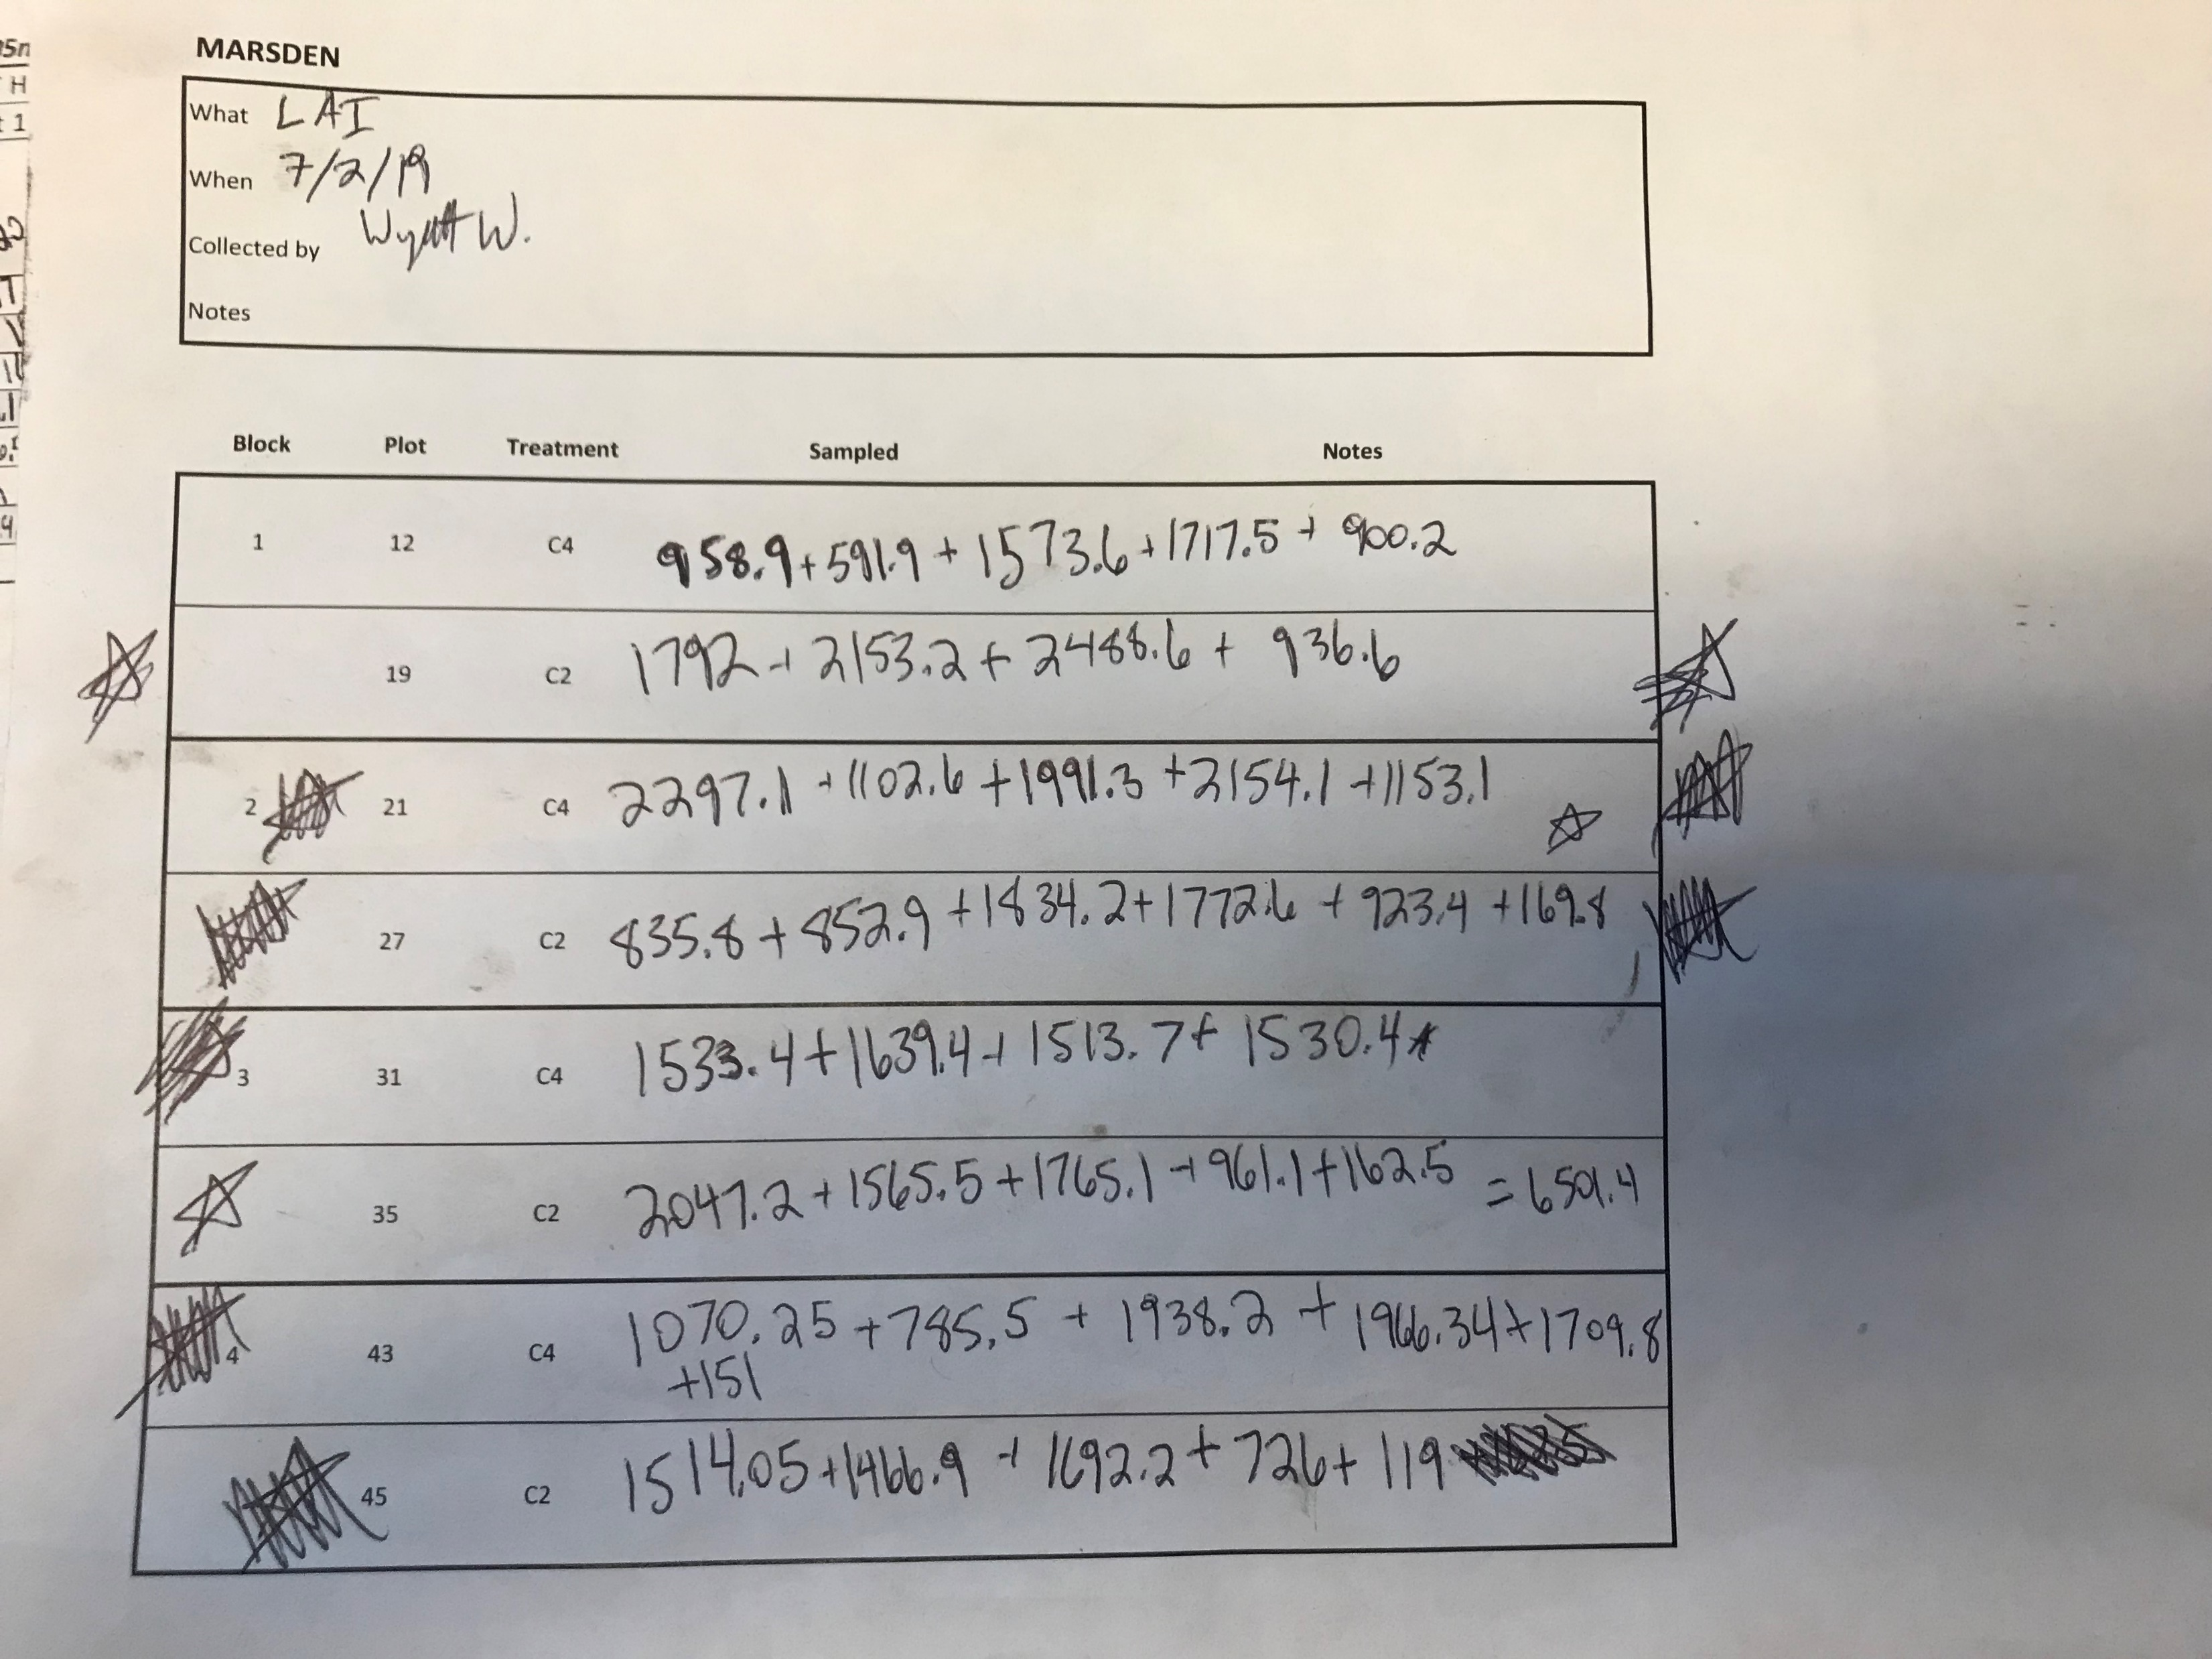 MARSDEN
What LAI
When 7/2/19
Collected by Wyatt W.
Notes
Block Plot Treatment Sampled Notes
1 12 C4 958.9+591.9 + 1573.6+1717.5 + 900.2
19 C2 1792 + 2153.2 + 2488.6 + 936.6
2 21 C4 2297.1 +1102.6 +1991.3 +2154.1 +1153.1
27 C2 835.8 + 852.9 +1834.2+1772.6 + 923.4 +169.8
3 31 C4 1533.4+1639.4+1513.7+ 1530.4
35 C2 2047.2 +1565.5+1765.1 +961.1+162.5 = 6501.4
4 43 C4 1070.25 +785.5 + 1938.2 + 1966.34+1709.8
+151
45 C2 1514.05+1466.9 + 1692.2 + 726+ 119
5n
H
1